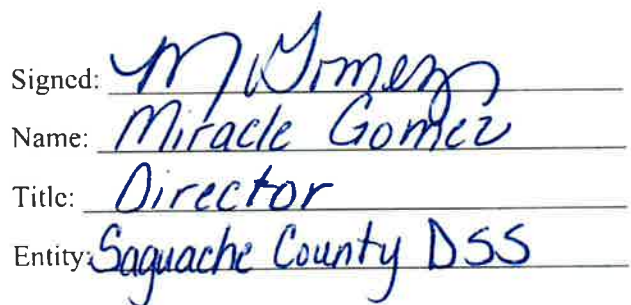 Signed: M Gomez
Name: Miracle Gomez
Title: Director
Entity: Saguache County DSS